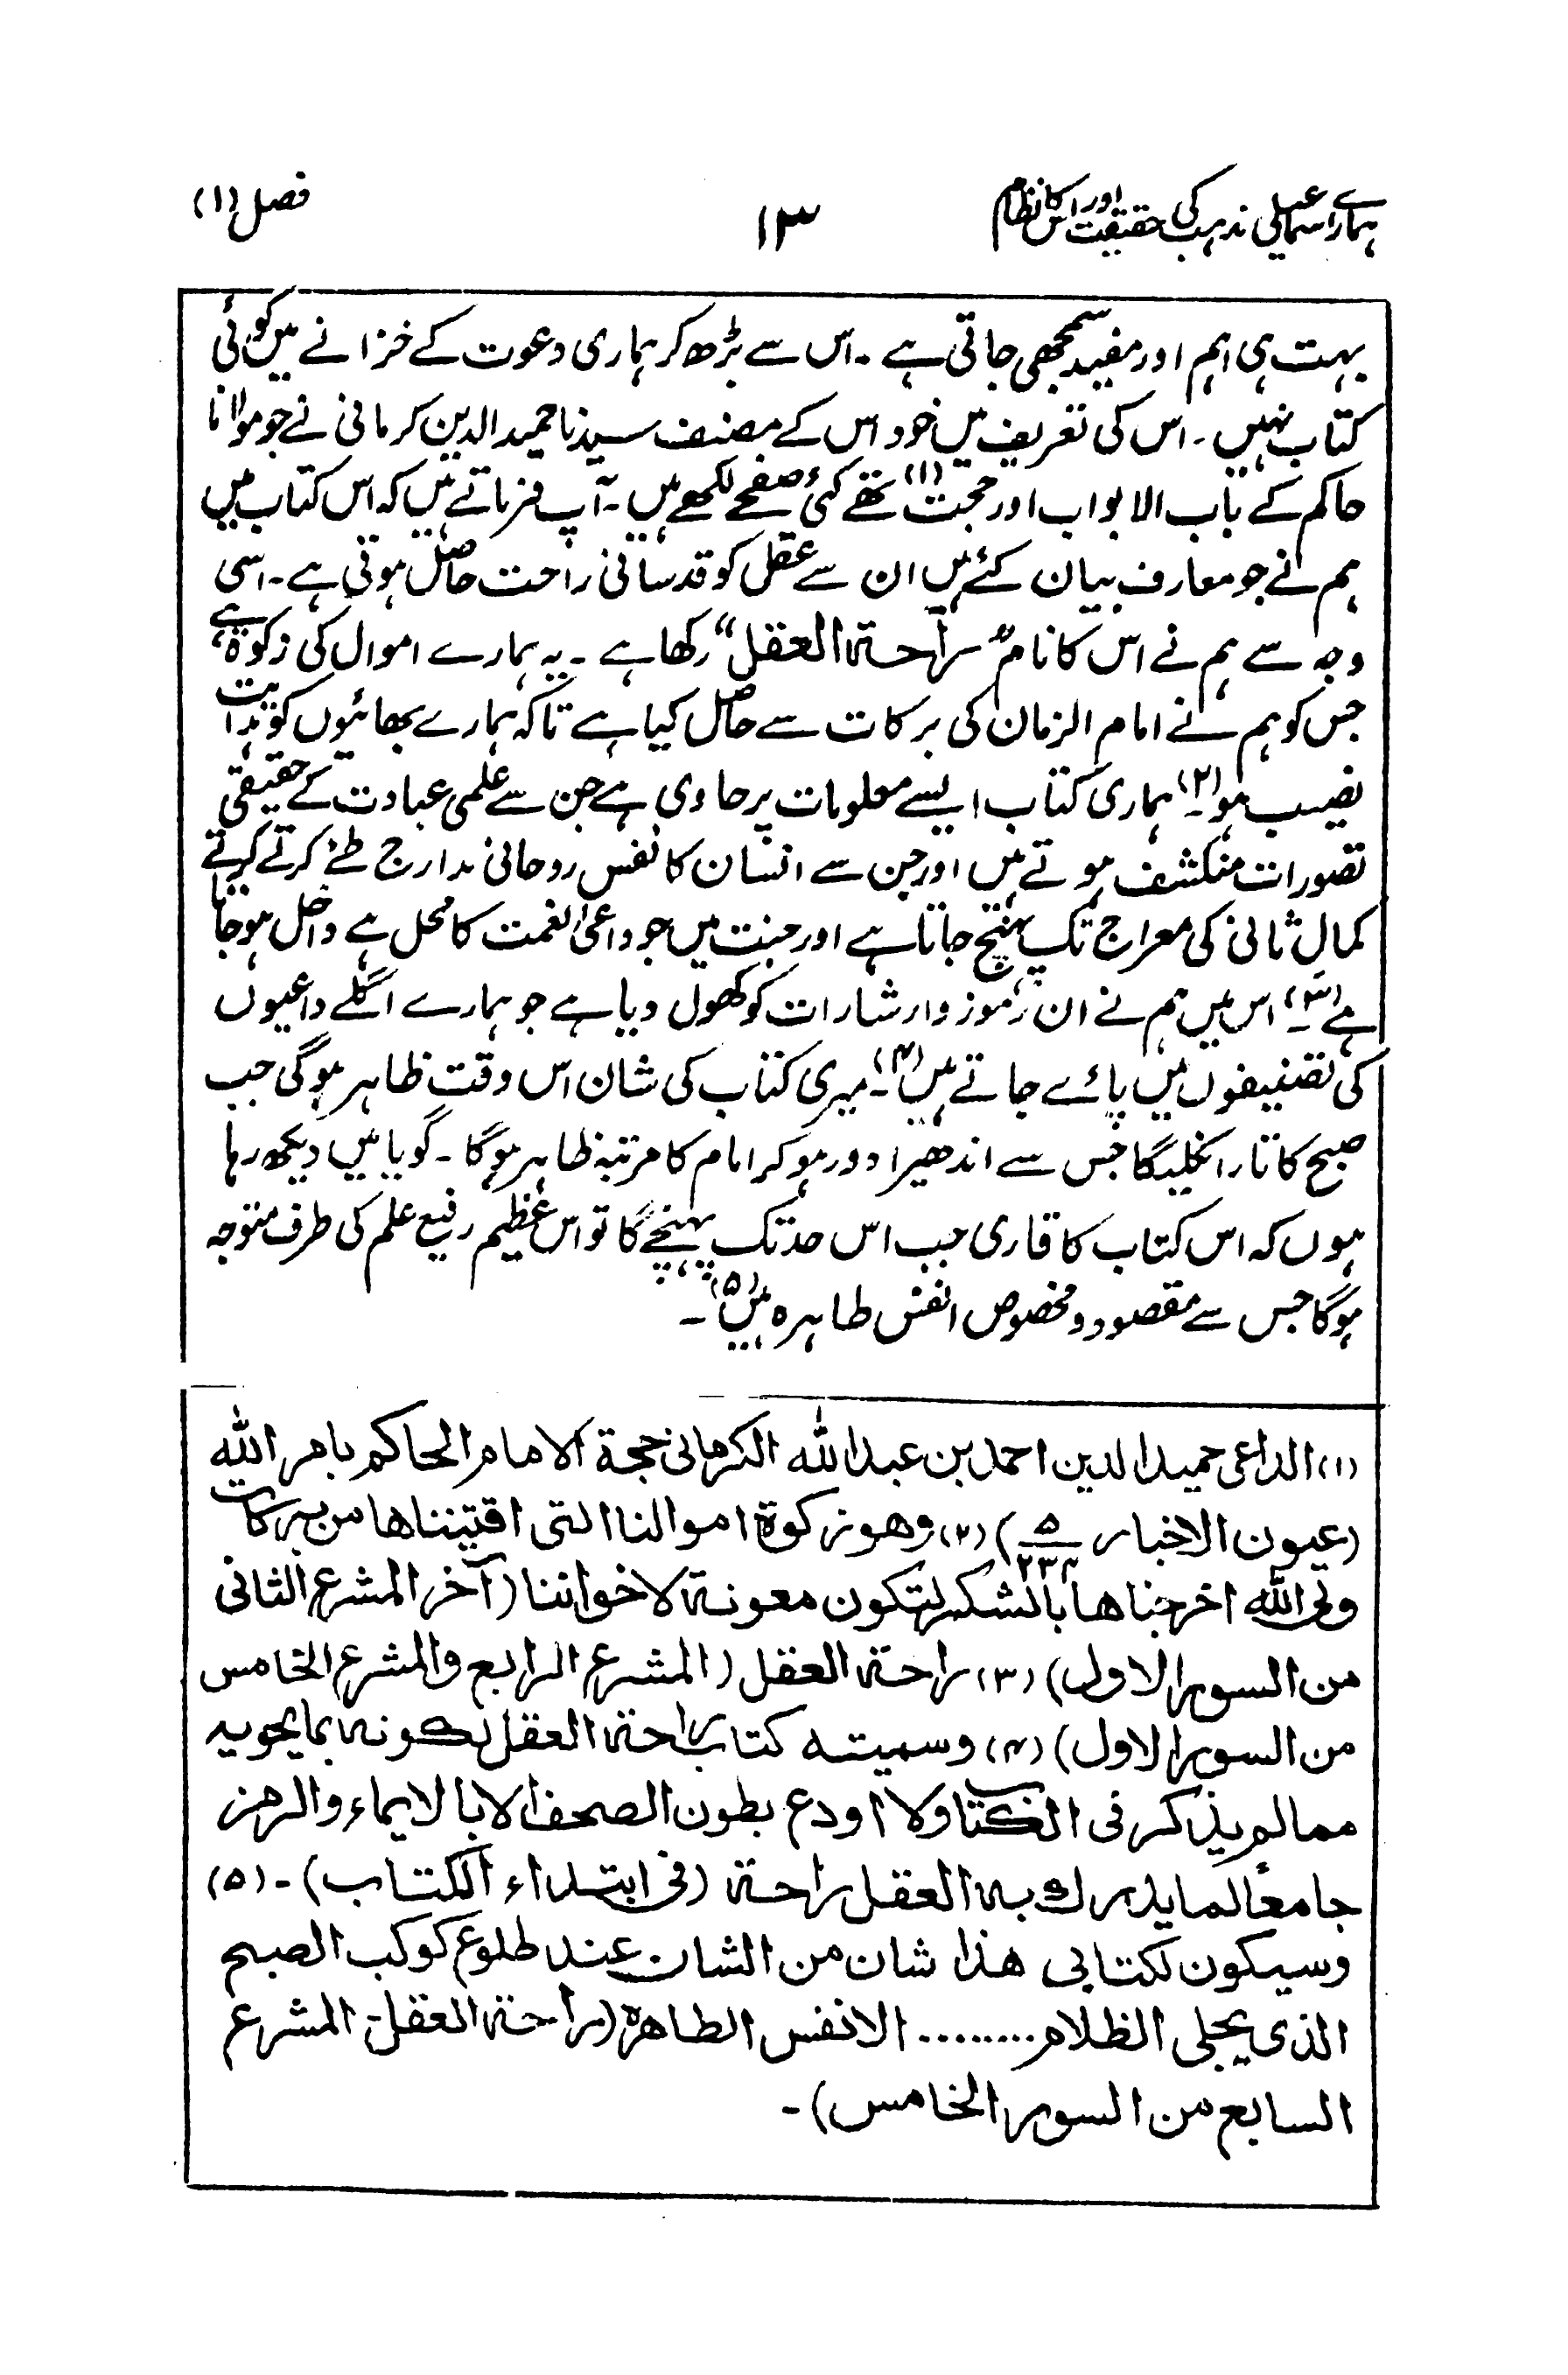 ہمارے اسماعیلی مذہب کی حقیقت اور اس کا نظام
۱۳
فصل (۱)
بہت ہی اہم اور مفید سمجھی جاتی ہے ۔ اس سے بڑھ کر ہماری دعوت کے خزانے میں کوئی
کتاب نہیں ۔ اس کی تعریف میں خود اس کے مصنف سیدنا حمید الدین کرمانی نے جو مولانا
حاکم کے باب الابواب اور حجت (۱) تھے کئی صفحے لکھے ہیں ۔ آپ فرماتے ہیں کہ اس کتاب میں
ہم نے جو معارف بیان کئے ہیں ان سے عقل کو قدسانی راحت حاصل ہوتی ہے ۔ اسی
وجہ سے ہم نے اس کا نام "راحۃ العقل" رکھا ہے ۔ یہ ہمارے اموال کی زکوۃ ہے،
جس کو ہم نے امام الزمان کی برکات سے حاصل کیا ہے تاکہ ہمارے بھائیوں کو ہدایت
نصیب ہو (۲)۔ ہماری کتاب ایسے معلومات پر حاوی ہے جن سے علمی عبادت کے حقیقی
تصورات منکشف ہوتے ہیں اور جن سے انسان کا نفس روحانی مدارج طئے کرتے کرتے
کمالِ ثانی کی معراج تک پہنچ جاتا ہے اور جنت میں جو داعی النعمت کا محل ہے داخل ہو جاتا
ہے (۳)۔ اس میں ہم نے ان رموز و ارشارات کو کھول دیا ہے جو ہمارے اگلے داعیوں
کی تصنیفوں میں پائے جاتے ہیں (۴)۔ میری کتاب کی شان اس وقت ظاہر ہوگی جب
صبح کا تارا نکلیگا جس سے اندھیرا دور ہو کر امام کا مرتبہ ظاہر ہوگا ۔ گویا میں دیکھ رہا
ہوں کہ اس کتاب کا قاری جب اس حد تک پہنچے گا تو اس عظیم رفیع علم کی طرف متوجہ
ہوگا جس سے مقصود و مخصوص انفس طاہرہ ہیں (۵) ۔
(۱) الداعی حمید الدین احمد بن عبد اللہ الکرمانی حجۃ الامام الحاکم بامر اللہ
(عیون الاخبار ۵/۲۳۴) (۲) وھو زکوۃ اموالنا التی اقتیناھا من برکات
ولی اللہ اخرجناھا بالشکر لتکون معونۃ لاخواننا (آخر المشرع الثانی
من السور الاول) (۳) راحۃ العقل (المشرع الرابع والمشرع الخامس
من السور الاول) (۴) وسمیتہ کتاب راحۃ العقل لکونہ بما یحویہ
ممالم یذکر فی الکتاب ولا اودع بطون الصحف الا بالایماء والرمز
جامعاً لما یدرک بہ العقل راحۃ (فی ابتداء الکتاب) ۔ (۵)
وسیکون لکتابی ھذا شان من الشان عند طلوع کوکب الصبح
الذی یجلی الظلام ........ الانفس الطاھرۃ (راحۃ العقل ۔ المشرع
السابع من السور الخامس) ۔